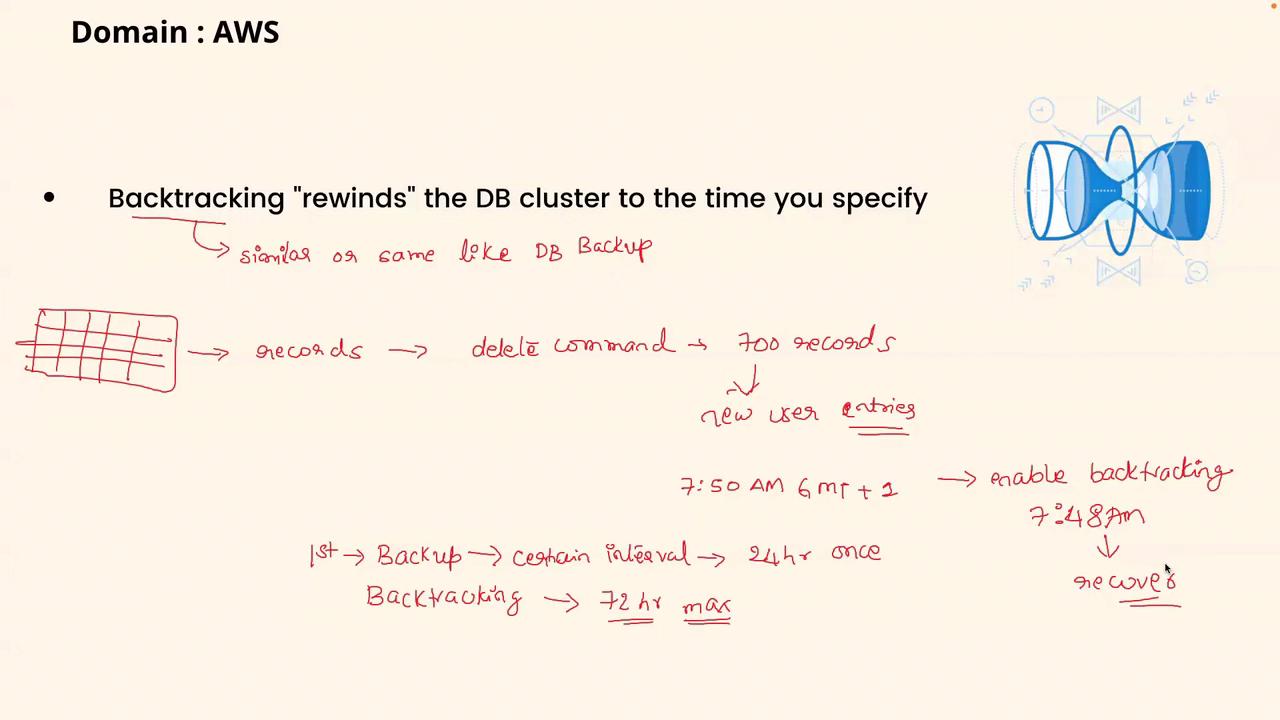 Domain : AWS
• Backtracking "rewinds" the DB cluster to the time you specify
similar or same like DB Backup
→ records → delete command → 700 records
new user entries
7:50 AM GMT + 1 → enable backtracking
7:48 AM
recover
1st → Backup → certain interval → 24hr once
Backtracking → 72 hr max